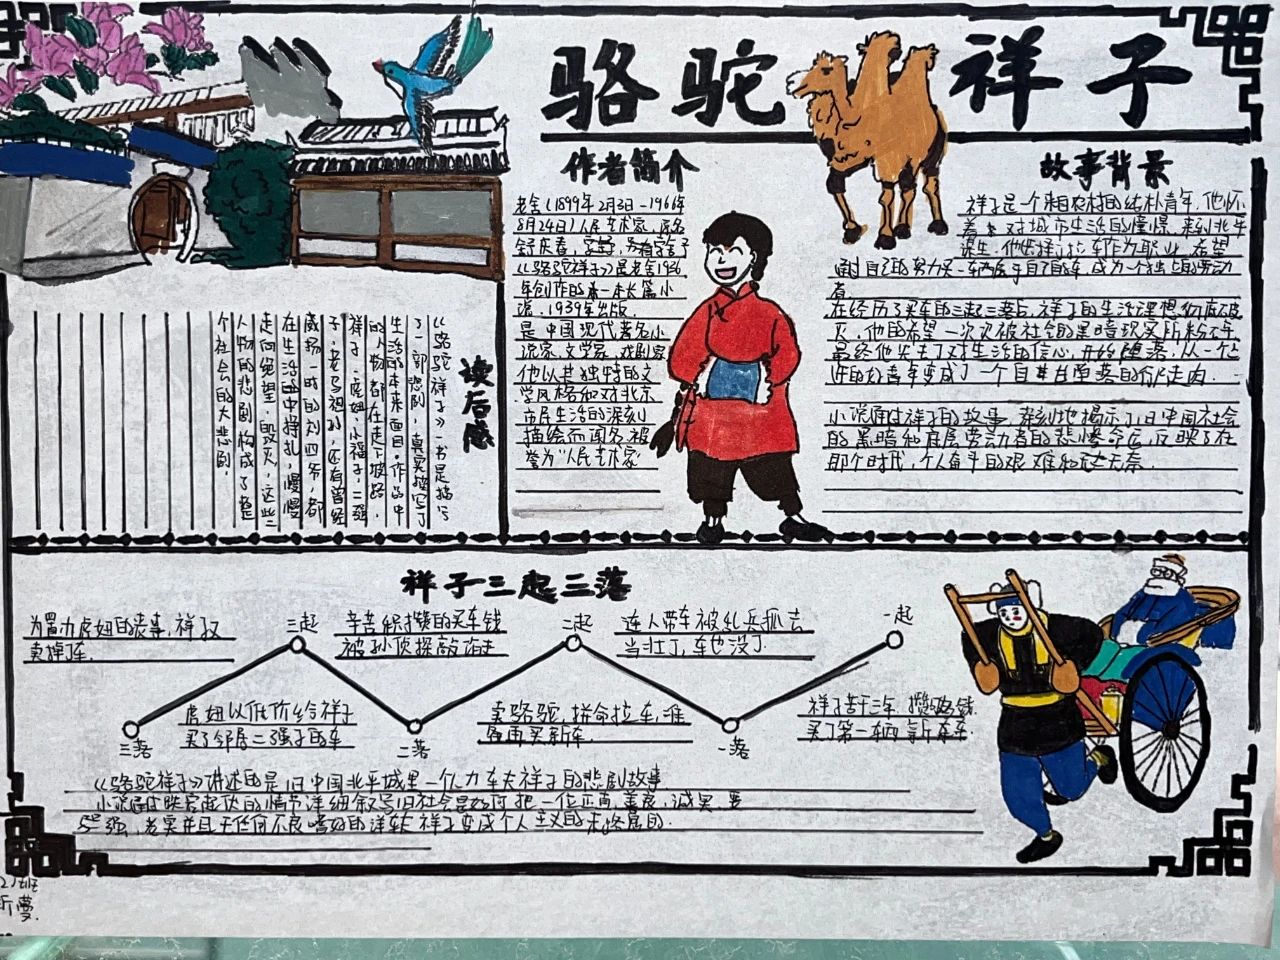 骆驼祥子
作者简介
老舍(1899年2月3日-1966年
8月24日)人民艺术家,原名
舒庆春,字舍予
《骆驼祥子》是老舍1936
年创作的第一本长篇小
说.1939年出版.
是中国现代著名小
说家、文学家、戏剧家
他以其独特的文
学风格和对北京
市民生活的深刻
描绘而闻名.被
誉为"人民艺术家"
故事背景
祥子是一个来自农村的纯朴青年,他怀
着对城市生活的憧憬,来到北平
谋生.他选择了拉车作为职业,希望
通过自己的努力买一辆属于自己的车,成为一个独立的劳动
者.
在经历了买车的三起三落后,祥子的生活理想彻底破
灭.他的希望一次次被社会的黑暗现实所粉碎.
最终他失去了对生活的信心,开始堕落,从一个上
进的好青年变成了一个自甘堕落的行尸走肉.
小说通过祥子的故事,深刻地揭示了旧中国社会
的黑暗和底层劳动者的悲惨命运,反映了在
那个时代,个人奋斗的艰难和无奈.
读后感
《骆驼祥子》一书是描写
了一部悲剧,真实描写了
生活的本来面目。作品中
的人物都在走下坡路,
祥子、虎妞、小福子、二强
子、老马祖孙,还有曾经
威扬一时的刘四爷,都
在生活的中挣扎,慢慢
走向绝望、毁灭,这些
人物的悲剧构成了整
个社会的大悲剧。
祥子三起三落
为置办虎妞的丧事,祥子又
卖掉了车.
三起
辛苦积攒的买车钱
被孙侦探敲诈走
二起
连人带车被乱兵抓去
当壮丁,车也没了
一起
三落
虎妞以低价给祥子
买了邻居二强子的车
二落
卖骆驼,拼命拉车,准
备再买新车.
一落
祥子苦干三年.攒钱
买了第一辆新车
《骆驼祥子》讲述的是旧中国北平城里一个人力车夫祥子的悲剧故事
小说通过跌宕起伏的情节详细叙写旧社会是如何把一位正直、善良、诚实、要
强、老实并且无任何不良嗜好的祥子变成个人主义的末路鬼的.